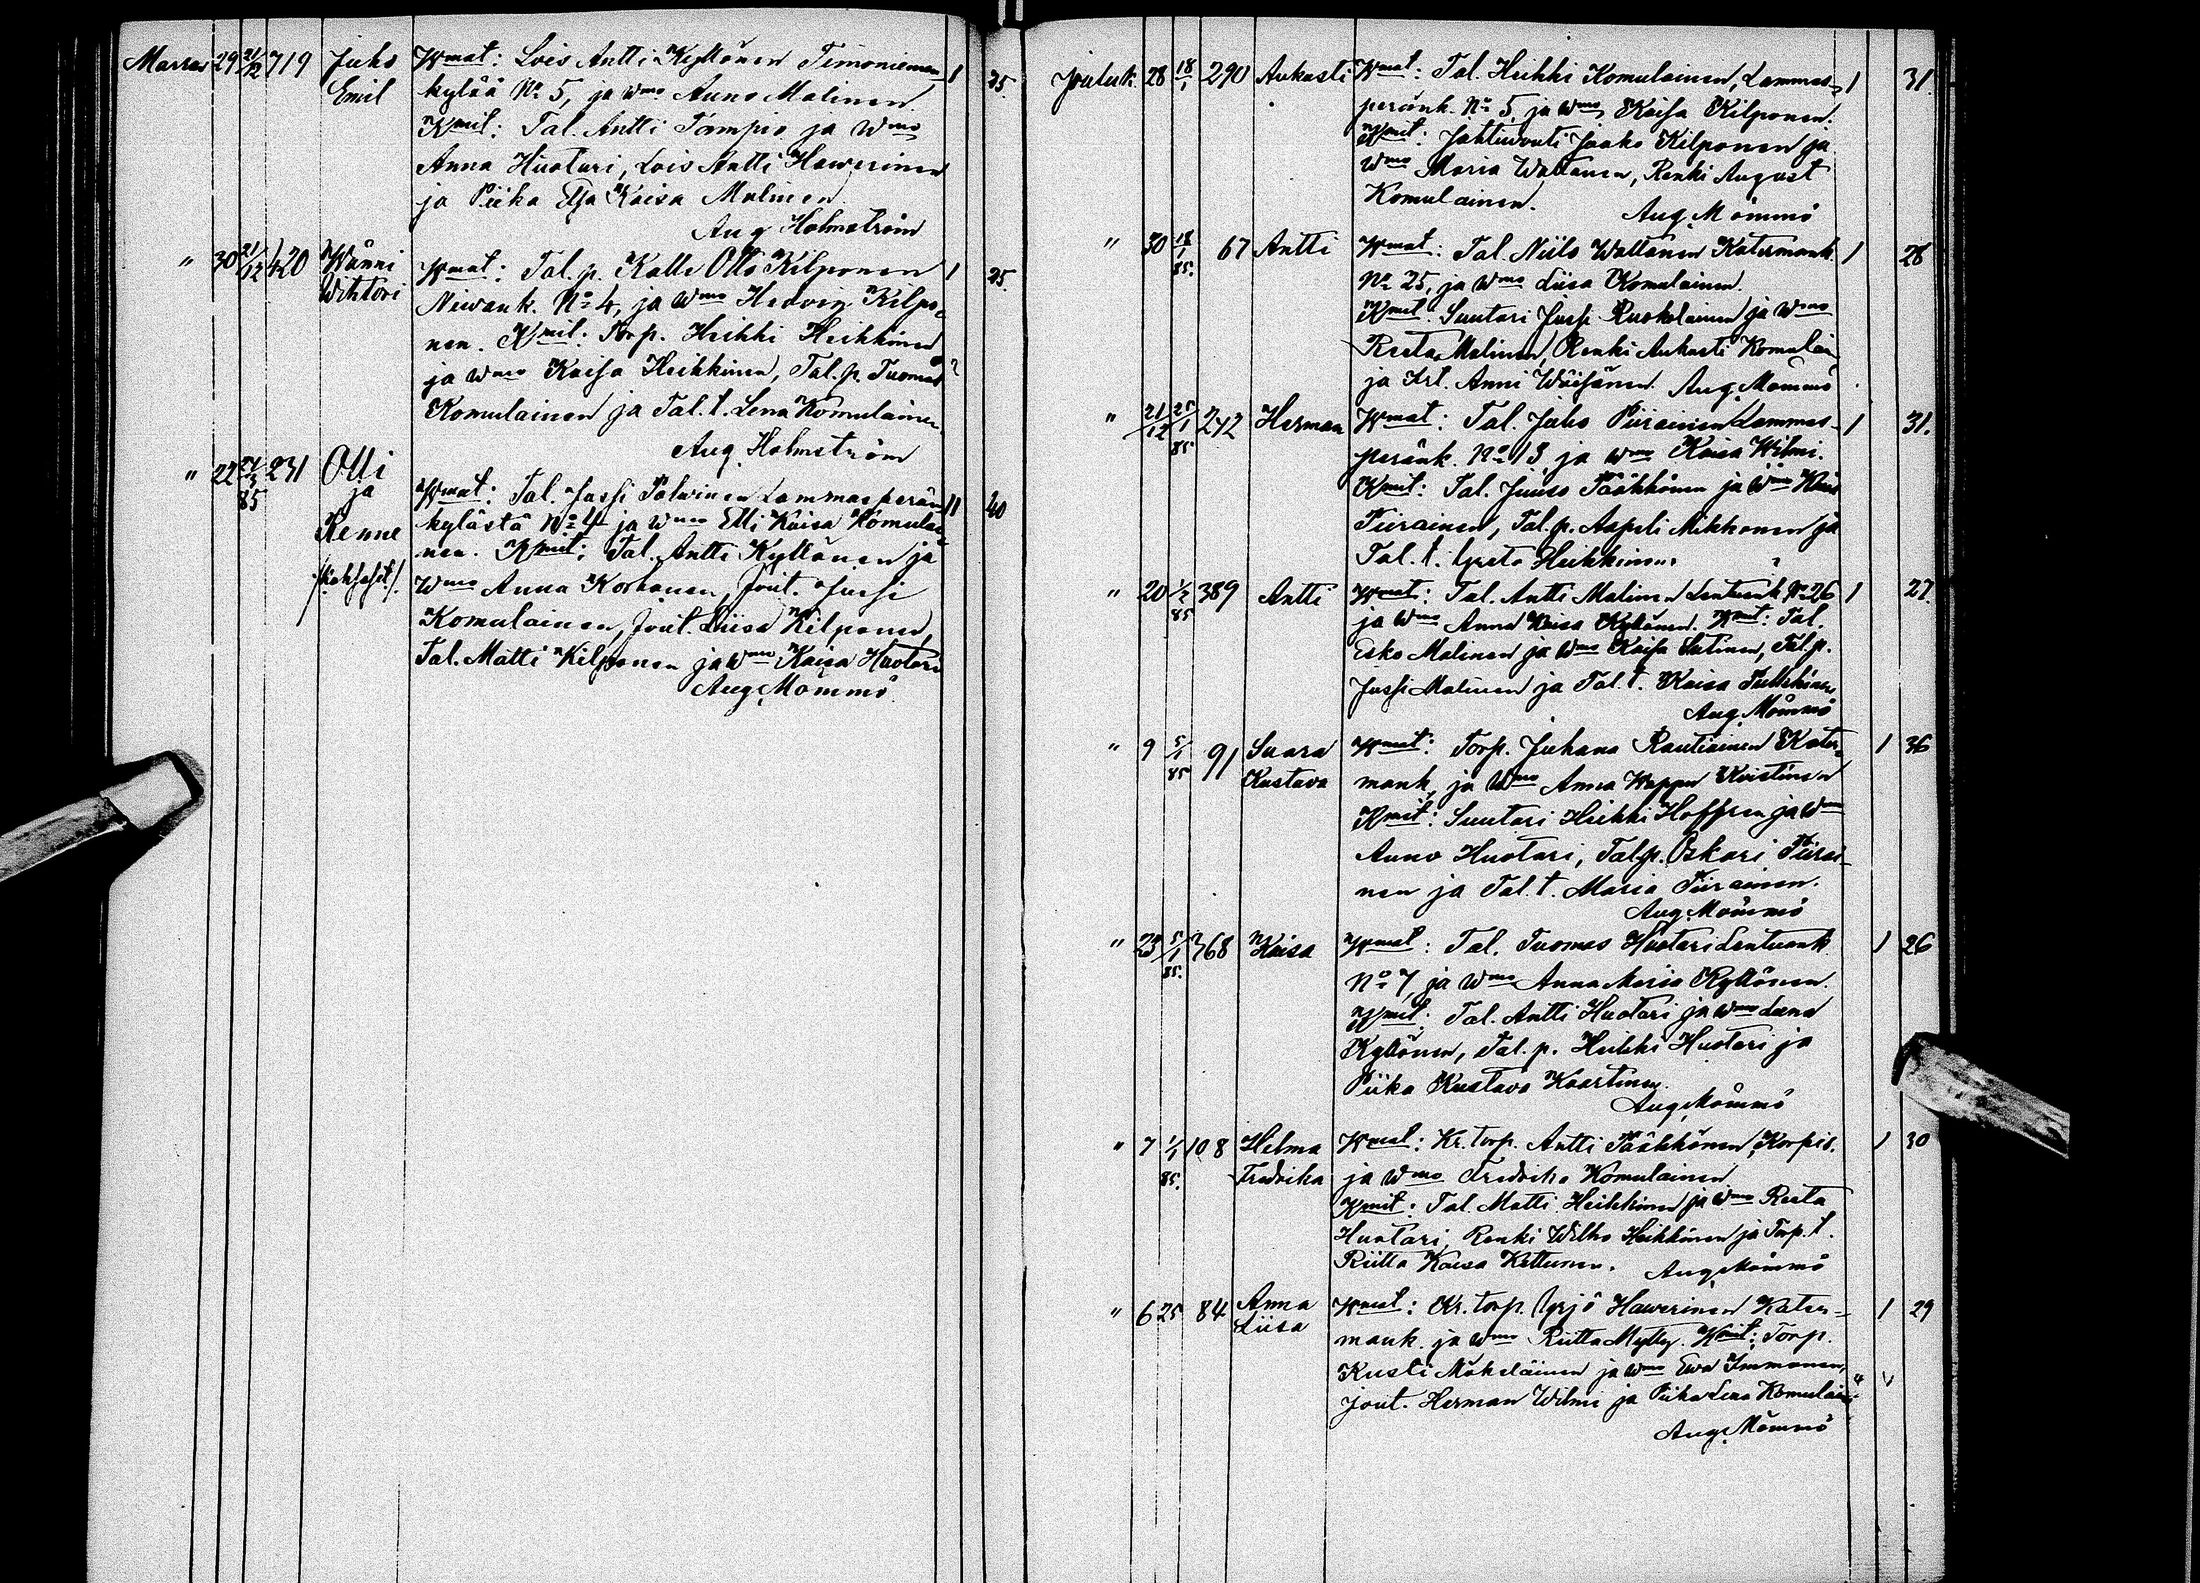 Marras 29 21/12 719 Juho Emil Wmat: Lois Antti Kyllönen Timoniemen 1 35.
kylää No 5, ja wmo Anna Malinen.
Kmit: Tal. Antti Tampio ja Wmo
Anna Huotari, Lois Antti Hawerinen
ja Piika Elsa Kaisa Malinen.
Aug Holmström
" 30 21/12 420 Wänni Wihtori Wmat: Tal. p. Kalle Otto Kilponen 1 35.
Niwank. No 4, ja wmo Hedvig Kilpo-
nen. Kmit: Torp. Heikki Heikkinen
ja wmo Kaisa Heikkinen, Tal. p. Tuomas
Komulainen ja Tal. t. Lena Komulainen.
Aug. Holmström
" 22 85 231 Olli ja Renne /:kaksoset:/ Wmat: Tal. Jussi Polwinen Lammasperän 11 40
kylästä No 4 ja wmo Elli Kaisa Komulai-
nen. Kmit: Tal. Antti Kyllönen ja
Wmo Anna Korhonen, Jout. Jussi
Komulainen, Jout. Liisa Kilponen,
Tal. Matti Kilponen ja wmo Kaisa Huotari
Aug. Mömmö.
Jouluk. 28 18/1 290 Aukusti Wmat: Tal. Heikki Komulainen, Lammas- 1 31.
peränk. No 5, ja wmo Kaisa Kilponen.
Kmit: Jahtivouti Jaako Kilponen ja
wmo Maria Wattanen, Renki August
Komulainen.
Aug. Mömmö
" 30 18/1 85. 67 Antti Wmat: Tal. Niilo Wattanen Katermank. 1 28
No 25, ja wmo Liisa Komulainen.
Kmit: Suutari Jussi Ruokolainen ja wmo
Reeta Malinen, Renki Aukusti Komulai
ja Irt. Anni Wäisänen. Aug. Mömmö
" 21/12 25/1 85 242 Herman Wmat: Tal. Juho Piirainen Lammas- 1 31.
peränk. No 13, ja wmo Kaisa Wilmi.
Kmit: Tal. Juuso Pääkkönen ja Wmo
Piirainen, Tal. p. Aapeli Mikkonen ja
Tal. t. Greta Heikkinen.
" 20 1/2 85 389 Antti Wmat: Tal. Antti Malinen Lentuank No 26 1 27.
ja Wmo Anna Kaisa Kyllönen. Kmit: Tal.
Esko Malinen ja Wmo Kaisa Sutinen, Tal. p.
Jussi Malinen ja Tal. t. Kaisa
Aug. Mömmö
" 9 5/1 85 91 Saara Kustava Wmat: Torp. Juhana Rautiainen Kater- 1 36
mank, ja Wmo Anna Wappu Koistinen
Kmit: Suutari Heikki Hoffren ja Wmo
Anna Huotari, Tal. p. Oskari Piirai-
nen ja Tal. t. Maria Piirainen.
Aug. Mömmö
" 23 5/1 85. 368 Kaisa Wmat: Tal. Tuomas Huotari Lentuank. 1 26
No 7, ja Wmo Anna Maria Kyllönen.
Kmit: Tal. Antti Huotari ja wmo Leena
Kyllönen, Tal. p. Heikki Huotari ja
Piika Kustava Kaartinen.
Aug. Mömmö
" 7 1/1 85. 108 Helma Fredrika Wmat: Kr. torp. Antti Pääkkönen, Korpis. 1 30
ja Wmo Fredrika Komulainen
Kmit: Tal. Matti Heikkinen ja wmo Reeta
Huotari, Renki Wilho Heikkinen ja Torp. t.
Riitta Kaisa Kettunen. Aug. Mömmö
" 6 25 84 Anna Liisa Wmat: Kr. torp. Yrjö Hawerinen Kater- 1 29
mank. ja wmo Riitta Mylly. Kmit: Torp.
Kusti Mäkeläinen ja wmo Ewa Immonen,
Jout. Herman Wilmi ja Piika Lena Komulai
Aug. Mömmö